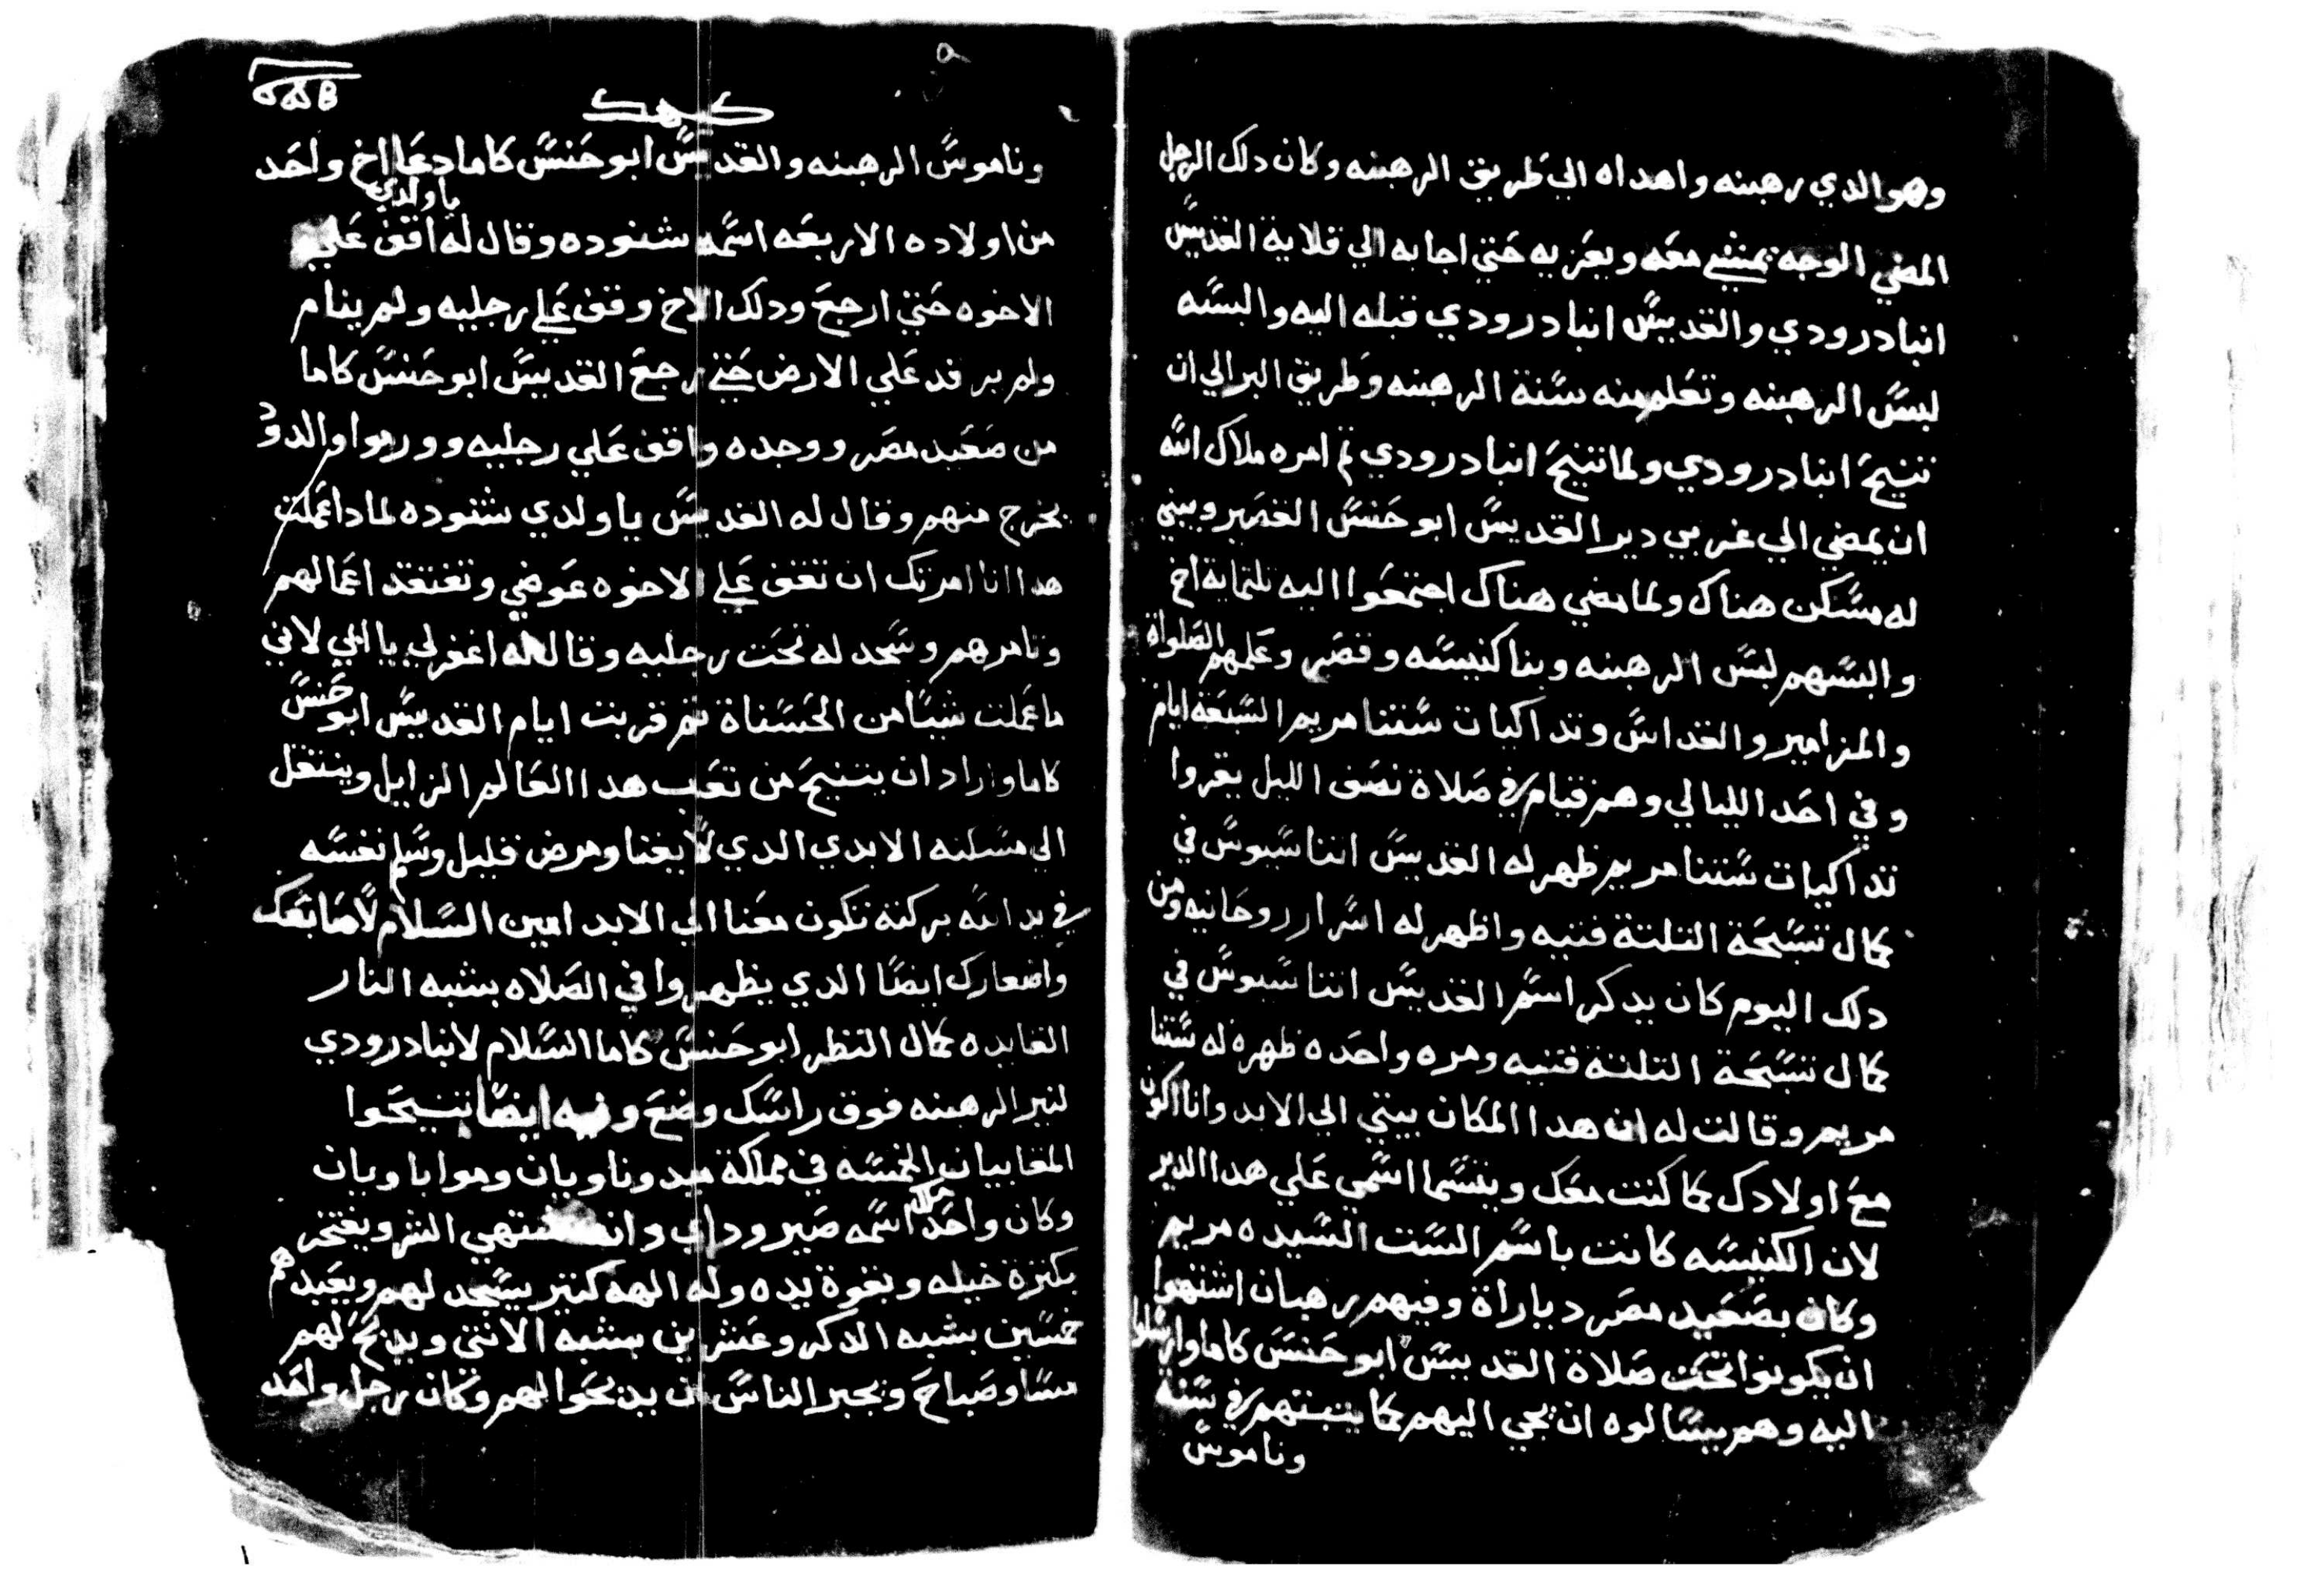 وهو الدي رهبنه واهداه الي طريق الرهبنه وكان دلك الرجل
المضي الوجه يمشي معه ويعزيه حتي اجابه الي قلاية القديس
انبا درودي والقديس انبا درودي قبله اليه والبسه
لبس الرهبنه وتعلم منه سنة الرهبنه وطريق البر الي ان
تنيح انبا درودي ولما تنيح انبا درودي تم امره ملاك الله
ان يمضي الي غربي دير القديس ابو حنس القصير ويبني
له مسكن هناك ولما مضي هناك اجتمعوا اليه تلتماية اخ
والبسهم لبس الرهبنه وبنا كنيسه وقصر وعلمهم الصلواة
والمزامير والقداس وتداكيات ستنا مريم السبعة ايام
وفي احد الليالي وهم قيام في صلاة نصف الليل يقروا
تداكيات ستنا مريم ظهر له القديس اتناسيوس في
كمال تسبحة التلتة فتيه واظهر له اسرار روحانيه ومن
دلك اليوم كان يدكر اسم القديس اتناسيوس في
كمال تسبحة التلتة فتيه ومره واحده ظهره له ستنا
مريم وقالت له ان هدا المكان بيتي الي الابد وانا اكون
مع اولادك كما كنت معك ويتسما اسمي علي هدا الدير
لان الكنيسه كانت باسم الست السيده مريم
وكان بصعيد مصر دياراة وفيهم رهبان اشتهوا
ان يكونوا تحت صلاة القديس ابو حنس كاما وارسلوا
اليه وهم يسالوه ان يجي اليهم كما يتبتهم في سنة
وناموس
كهك
وناموس الرهبنه والقديس ابو حنس كاما دعا اخ واحد
من اولاده الاربعه اسمه شنوده وقال له يا ولدي اقف علي
الاخوه حتي ارجع ودلك الاخ وقف علي رجليه ولم ينام
ولم يرقد علي الارض حتي رجع القديس ابو حنس كاما
من صعيد مصر ووجده واقف علي رجليه وورموا والدود
يخرج منهم وقال له القديس يا ولدي شنوده لمادا عملت
هدا انا امرتك ان تقف علي الاخوه عوضي وتفتقد اعمالهم
وتامرهم وسجد له تحت رجليه وقال له اغفر لي يا ابي لاني
ما عملت شيا من الحسناة تم قربت ايام القديس ابو حنس
كاما واراد ان يتنيح من تعب هدا العالم الزايل وينتقل
الي مسكنه الابدي الدي لا يفنا ومرض قليل وسلم نفسه
في يد الله بركته تكون معنا الي الابد امين السلام
وا ايضا الدي يظهروا في الصلاه بشبه النار
كمال النظر ابو حنس كاما السلام لانبا درودي
الرهبنه فوق راسك وضع وفيه ايضا تنيحوا
الخمسه في مملكة
وكان واحد ملك اسمه وانه الشر ويفتخر
بكترة خيله وبقوة يده وله الهه كتير يسجد لهم ويعبدهم
خمسين بشبه الدكر وعشرين بشبه الانتي ويدبح لهم
مسا وصباح ويجبر الناس ان يدبحوا لهم وكان رجل واحد